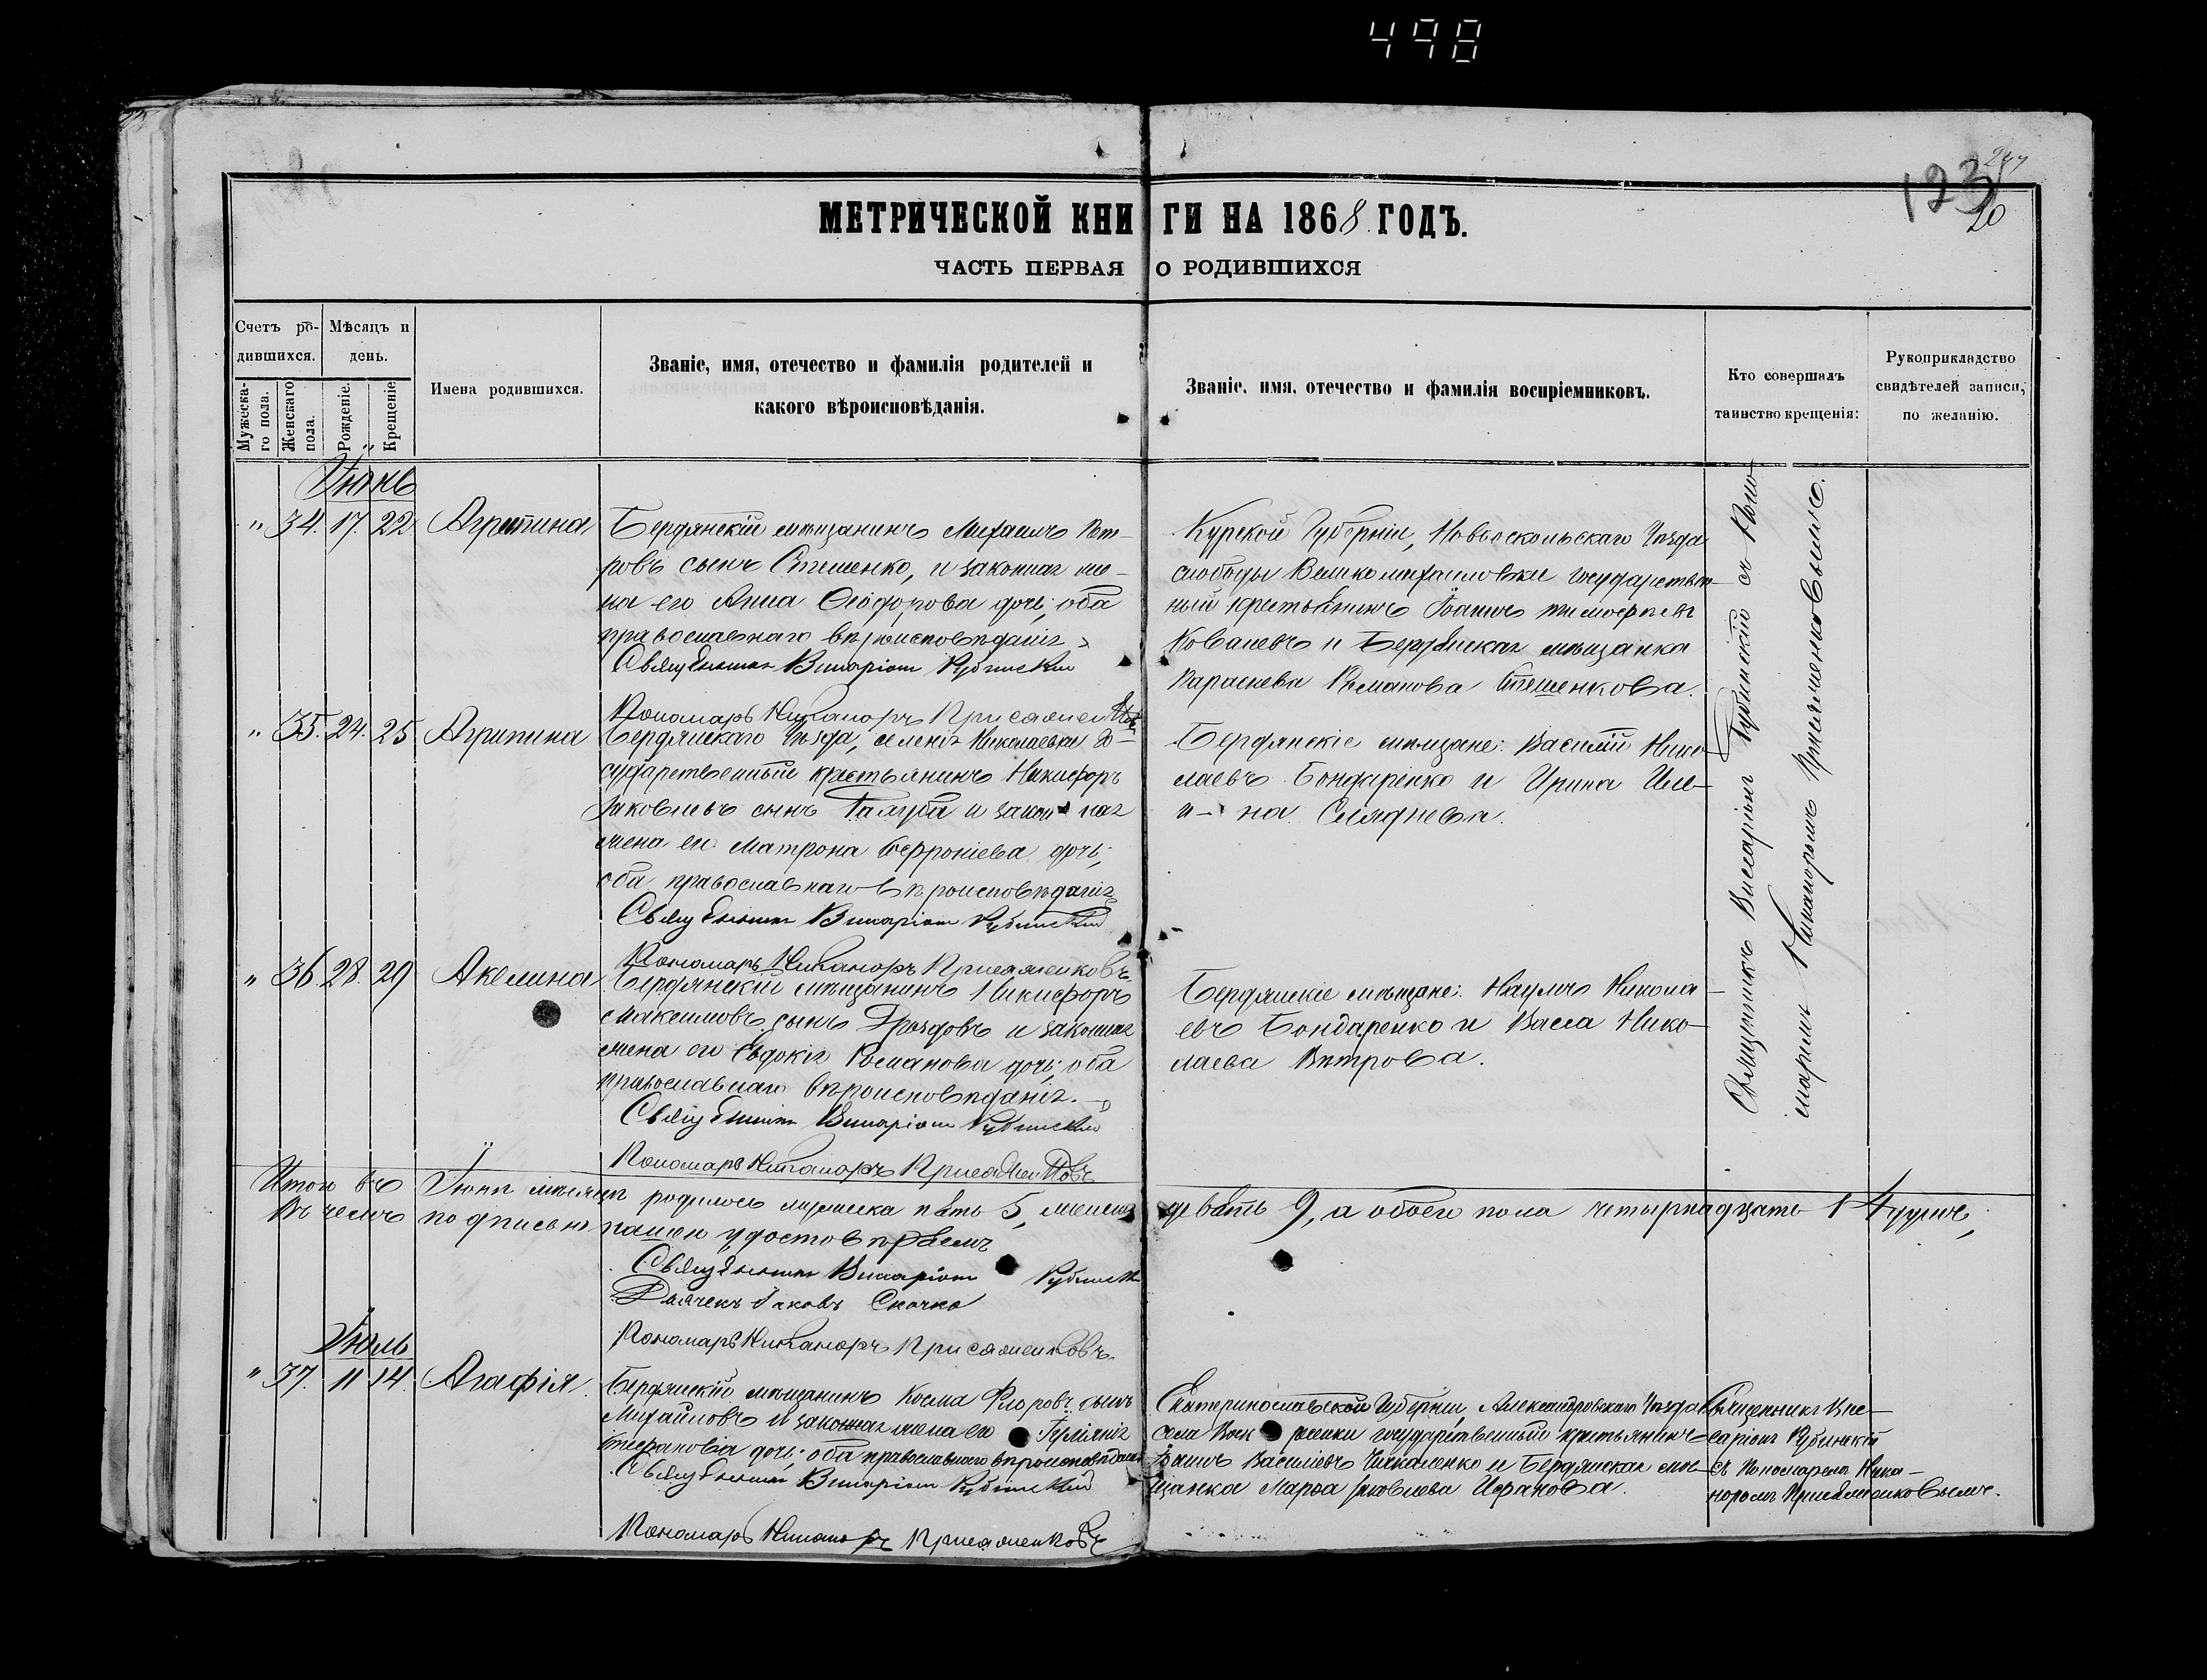 498
247
123
20
МЕТРИЧЕСКОЙ КНИГИ НА 1868 ГОДЪ.
ЧАСТЬ ПЕРВАЯ О РОДИВШИХСЯ
Счетъ ро-
дившихся.
Мѣсяцъ и
день.
Мужеска-
го пола.
Женскаго
пола.
Рожденіе.
Крещеніе
Имена родившихся.
Званіе, имя, отечество и фамилія родителей и
какого вѣроисповѣданія.
Званіе, имя, отечество и фамилія воспріемниковъ.
Кто совершалъ
таинство крещенія:
Рукоприкладство
свидѣтелей записи,
по желанію.
Іюнь
" 34. 17. 22. Агрипина
Бердянскій мѣщанинъ Михаилъ Пет-
ровъ сынъ Стешенко, и законная же-
на его Анна Ѳеодорова дочь; оба
православнаго вѣроисповѣданія
Священникъ Виссаріонъ Рубинскій
Пономарь Никаноръ Присяженковъ
Курской Губерніи, Новооскольскаго Уѣзда
слободы Великомихаиловки государствен-
ный крестьянинъ Іоаннъ Тимоѳеевъ
Ковалевъ и Бердянская мѣщанка
Параскева Романова Стешенкова.
Священникъ Виссаріонъ Рубинскій съ Поно-
маремъ Никаноромъ Присяженковымъ.
" 35. 24. 25 Агрипина
Бердянскаго Уѣзда, селенія Николаевки Го-
сударственный крестьянинъ Никифоръ
Яковлевъ сынъ Галуба и законная
жена его Матрона дочь;
оба православнаго вѣроисповѣданія
Священникъ Виссаріонъ Рубинскій
Пономарь Никаноръ Присяженковъ
Бердянскіе мѣщане: Василій Нико-
лаевъ Бондаренко и Ирина Иль-
и-на Сляднева.
" 36. 28. 29 Акелина
Бердянскій мѣщанинъ Никифоръ
Максимовъ сынъ Дроздовъ и законная
жена его Евдокія Романова дочь; оба
православнаго вѣроисповѣданія.
Священникъ Виссаріонъ Рубинскій
Пономарь Никаноръ Присяженковъ
Бердянскіе мѣщане: Наумъ Никола-
евъ Бондаренко и Васса Нико-
лаева Вѣтрова.
Итого въ Іюнѣ мѣсяцѣ родилось мужеска пять 5, женска девять 9, а обоего пола четырнадцать 14 душъ,
Въ чемъ подписью нашею удостовѣряемъ
Священникъ Виссаріонъ Рубинскій
Дьячекъ Іаковъ Скочко
Пономарь Никаноръ Присяженковъ.
Іюль
" 37. 11 14. Агафія.
Бердянскій мѣщанинъ Косма Флоровъ сынъ
Михайловъ и законная жена его Гуліянія
Стефановіа дочь; оба православнаго вѣроисповѣданія
Священникъ Виссаріонъ Рубинскій
Пономарь Никаноръ Присяженковъ
Екатеринославской Губерніи, Александровскаго Уѣзда
села государственный крестьянинъ
Іоаннъ Василіевъ Чикаленко и Бердянская мѣ-
щанка Марѳа Яковлева Исфанова.
Священникъ Вис-
саріонъ Рубинскій
съ Пономаремъ Ника-
норомъ Присяженковымъ.